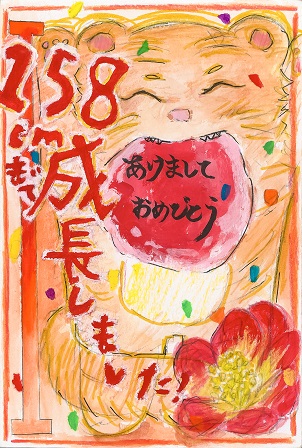 158
cmまで
成長しました!
あけまして
おめでとう